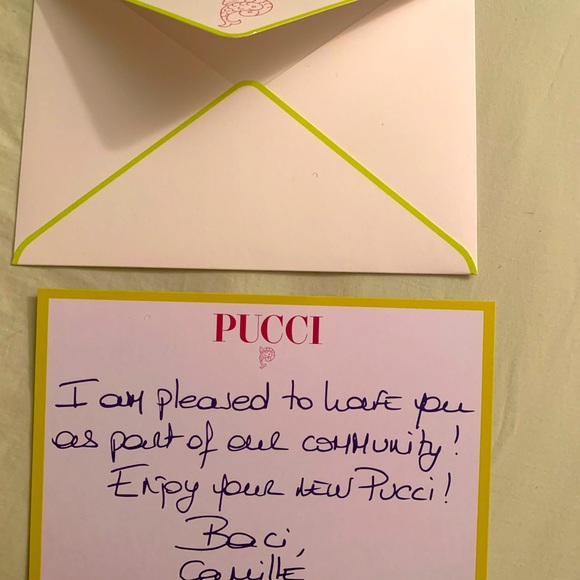 PUCCI
I am pleased to have you
as part of our community!
Enjoy your new Pucci!
Baci,
Camille